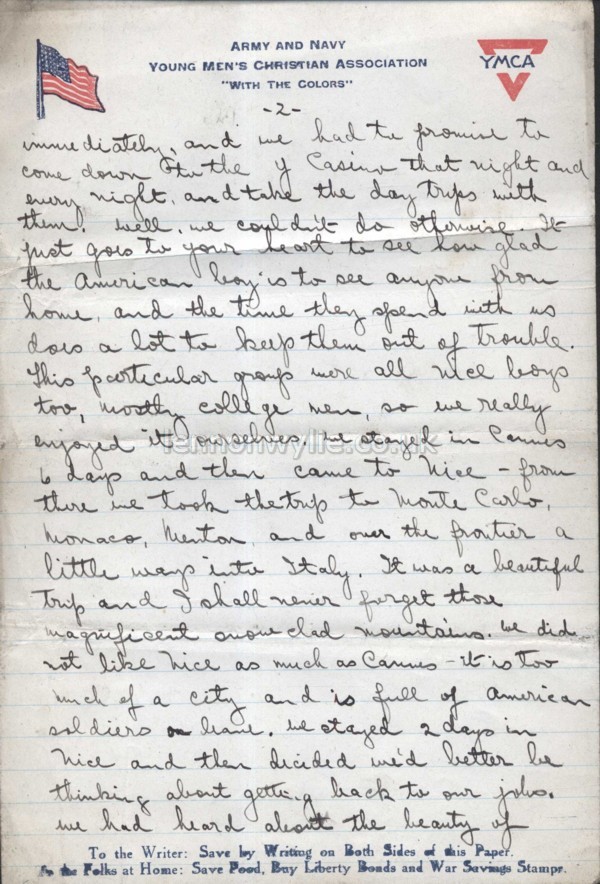 ARMY AND NAVY
YOUNG MEN'S CHRISTIAN ASSOCIATION
"WITH THE COLORS"
YMCA
-2-
immediately, and we had to promise to
come down to the Y Casino that night and
every night, and take the day trips with
them. Well, we couldn't do otherwise. It
just goes to your heart to see how glad
the American boy is to see anyone from
home, and the time they spend with us
does a lot to keep them out of trouble.
This particular group were all nice boys
too, mostly college men, so we really
enjoyed it ourselves. We stayed in Cannes
6 days and then came to Nice - from
there we took the trip to Monte Carlo,
Monaco, Menton, and over the frontier a
little ways into Italy. It was a beautiful
trip and I shall never forget those
magnificent snow clad mountains. We did
not like Nice as much as Cannes - it is too
much of a city and is full of American
soldiers on leave. We stayed 2 days in
Nice and then decided we'd better be
thinking about getting back to our jobs.
We had heard about the beauty of
To the Writer: Save by Writing on Both Sides of this Paper.
To the Folks at Home: Save Food, Buy Liberty Bonds and War Savings Stamps.
lennonwylie.co.uk